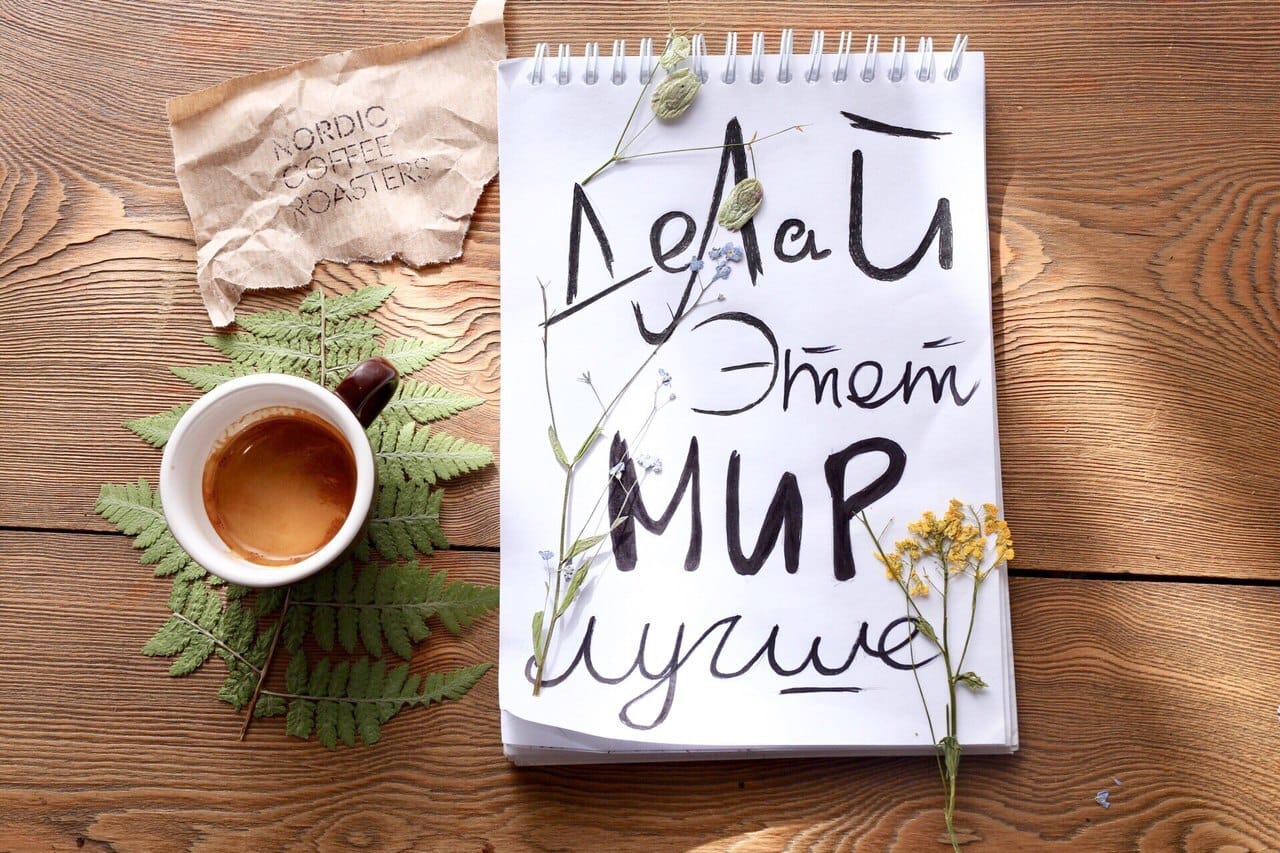 NORDIC
COFFEE
ROASTERS
Делай
Этот
МИР
лучше